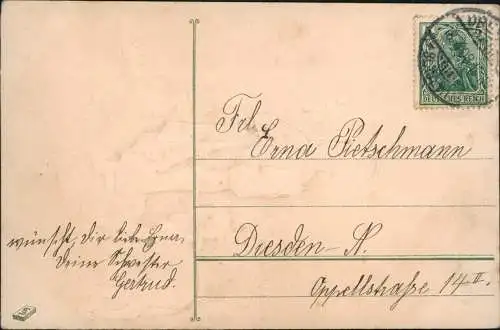 DEUTSCHES REICH
Frl.
Erna Pietschmann
Dresden-N.
Oppellstraße 14 II.
wünscht dir liebe Erna
Deine Schwester
Gertrud.